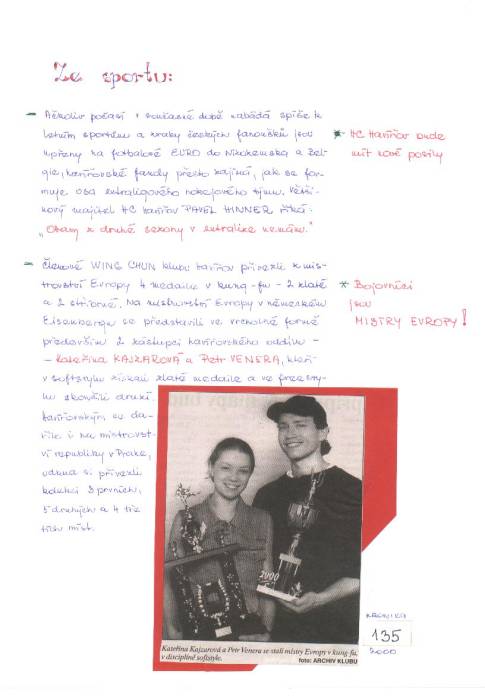 Ze sportu:
- Ačkoliv počasí v současné době nabádá spíše k
letním sportům a zraky českých fanoušků jsou
upřeny na fotbalové EURO do Nizozemska a Bel-
gie, havířovské fandy přesto zajímá, jak se for-
muje osa extraligového hokejového týmu. Větši-
nový majitel HC Havířov PAVEL HINNER říká:
"Obavy z druhé sezony v extralize nemám."
* HC Havířov bude
mít nové posily
- Členové WING CHUN klubu Havířov přivezli z mis-
trovství Evropy 4 medaile v kung-fu - 2 zlaté
a 2 stříbrné. Na mistrovství Evropy v německém
Eisenbergu se představili ve vrcholné formě
především 2 zástupci havířovského oddílu -
- Kateřina KAJZAROVÁ a Petr VENERA, kteří
v softstylu získali zlaté medaile a ve freesty-
lu skončili druzí.
Havířovským se da-
řilo i na mistrovst-
ví republiky v Praze,
odkud si přivezli
kolekci 3 prvních,
5 druhých a 4 tře-
tích míst.
* Bojovníci
jsou
MISTRY EVROPY!
2000
Kateřina Kajzarová a Petr Venera se stali mistry Evropy v kung-fu,
v disciplíně softstyle.
foto: ARCHIV KLUBU
KRONIKA
135
2000